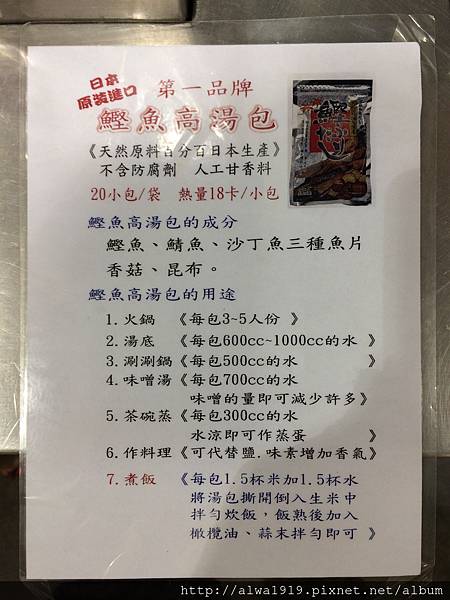 日本
原裝進口
第一品牌
鰹魚高湯包
《天然原料百分百日本生產》
不含防腐劑 人工甘香料
20小包/袋 熱量18卡/小包
鰹魚高湯包的成分
鰹魚、鯖魚、沙丁魚三種魚片
香菇、昆布。
鰹魚高湯包的用途
1.火鍋 《每包3~5人份 》
2.湯底 《每包600cc~1000cc的水 》
3.涮涮鍋《每包500cc的水 》
4.味噌湯《每包700cc的水
味噌的量即可減少許多》
5.茶碗蒸《每包300cc的水
水涼即可作蒸蛋 》
6.作料理《可代替鹽.味素增加香氣》
7.煮飯 《每包1.5杯米加1.5杯水
將湯包撕開倒入生米中
拌勻炊飯，飯熟後加入
橄欖油、蒜末拌勻即可 》
http://alwa1919.pixnet.net/album